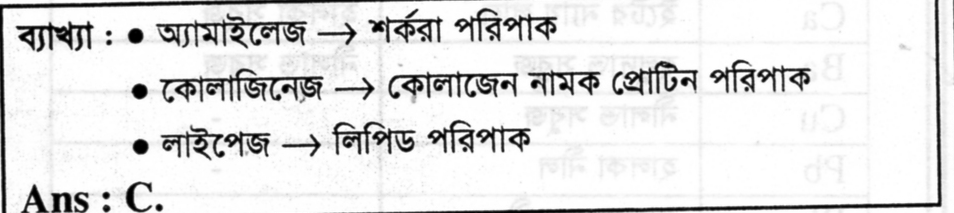 ব্যাখ্যা : ● অ্যামাইলেজ → শর্করা পরিপাক
● কোলাজিনেজ → কোলাজেন নামক প্রোটিন পরিপাক
● লাইপেজ → লিপিড পরিপাক
Ans : C.